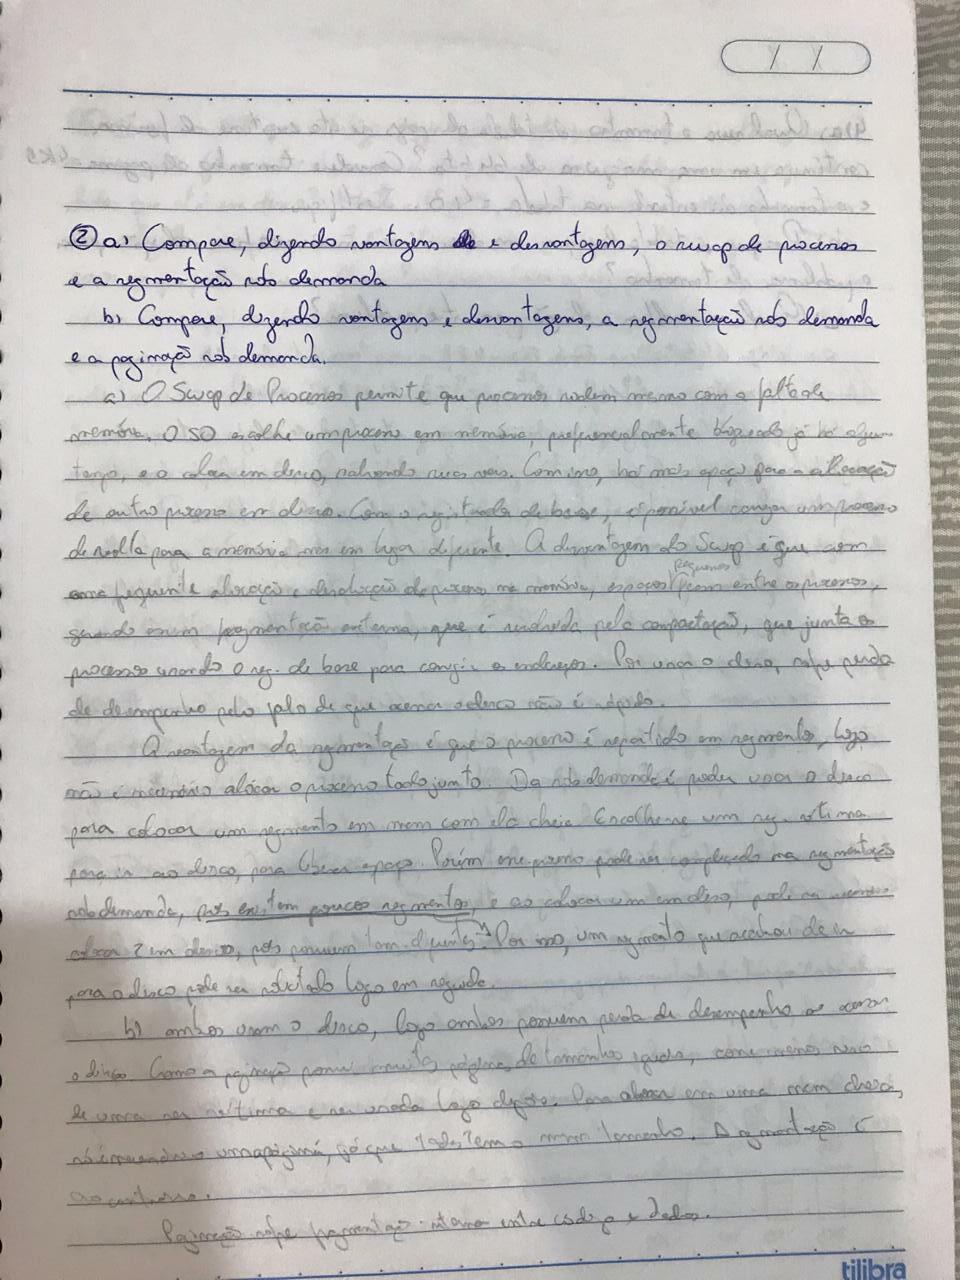 ② a) Compare, dizendo vantagens e desvantagens, o swap de processos
e a segmentação sob demanda
b) Compare, dizendo vantagens e desvantagens, a segmentação sob demanda
e a paginação sob demanda.
a) O Swap de Processos permite que processos rodem mesmo com a falta de
memória. O SO escolhe um processo em memória, preferencialmente bloqueado já há algum
tempo, e o coloca em disco, salvando seus Com isso, há mais espaço para a alocação
de outro processo em disco. Com o registrador de base, é possível um processo
de volta para a memória em lugar diferente. A desvantagem do Swap é que com
uma frequente alocação e desalocação de processos na memória, espaços pequenos ficam entre os processos,
gerando assim fragmentação externa, que é resolvida pela compactação, que junta os
processos usando o reg. de base para corrigir os endereços. Por usar o disco, sofre perda
de desempenho pelo fato de que acessar o disco não é rápido.
A vantagem da segmentação é que o processo é repartido em segmentos, logo
não é necessário alocar o processo todo junto. Da sob demanda é poder usar o disco
para colocar um segmento em mem com ela cheia. Escolhe-se um seg. vítima
para ir ao disco, para liberar espaço. Porém esse processo pode ser complicado na segmentação
sob demanda, pois existem poucos segmentos, e ao colocar um em disco, pode ser
colocar 2 em disco, pois possuem tam. diferentes. Por isso, um segmento que acabou de ir
para o disco pode ser solicitado logo em seguida.
b) ambos usam o disco, logo ambos possuem perda de desempenho ao acessar
o disco. Como a paginação possui muitas páginas de tamanhos iguais,
de uma ser vítima e ser usada logo depois. Para alocar em uma mem cheia,
só é necessário uma página, já que todas tem o mesmo tamanho. A segmentação é
ao contrário.
Paginação sofre fragmentação interna entre código e dados.
tilibra